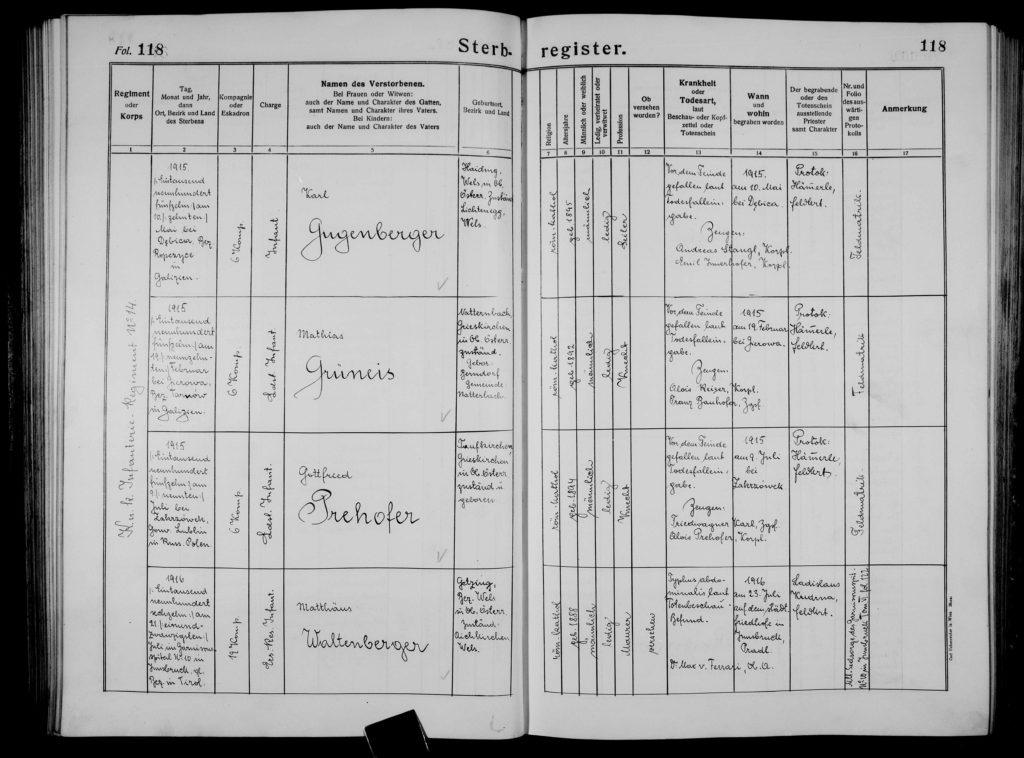 Fol. 118
Sterb-
register.
118
Regiment
oder
Korps
Tag,
Monat und Jahr,
dann
Ort, Bezirk und Land
des Sterbens
Kompagnie
oder
Eskadron
Charge
Namen des Verstorbenen.
Bei Frauen oder Witwen:
auch der Name und Charakter des Gatten,
samt Namen und Charakter ihres Vaters.
Bei Kindern:
auch der Name und Charakter des Vaters
Geburtsort,
Bezirk und Land
Religion
Altersjahre
Männlich oder weiblich
Ledig, verheiratet oder
verwitwet
Profession
Ob
versehen
worden?
Krankheit
oder
Todesart,
laut
Beschau- oder Kopf-
zettel oder
Totenschein
Wann
und
wohin
begraben worden
Der begrabende
oder den
Totenschein
ausstellende
Priester
samt Charakter
Nr. und
Folio
des auswär-
tigen
Proto-
kolls
Anmerkung
1
2
3
4
5
6
7
8
9
10
11
12
13
14
15
16
17
K. u. k. Infanterie-Regiment No 14
1915
/: Eintausend
neunhundert
fünfzehn / am
10./: zehnten /
Mai bei
Dębica, Bez.
Ropczyce
in
Galizien.
6 Komp.
Infant
Karl
Gugenberger
Haiding,
Wels, in Ob.
Österr. Zuständ
Lichtenegg,
Wels.
röm. kathol
geb 1895
männlich
ledig
Seiler
Vor dem Feinde
gefallen laut
Todesfallein-
gabe.
Zeugen:
Andreas Stangl, Korpl.
Emil Innerhofer, Korpl.
1915.
am 10. Mai
bei Dębica.
Protok:
Hämerle,
Feldkrt.
Feldmatrik.
1915
/: Eintausend
neunhundert
fünfzehn / am
19./: neunzehn-
ten / Februar
bei Zierowa,
Bez. Tarnow
in Galizien.
6 Komp.
Ldst. Infant
Mathias
Grüneis
Natternbach,
Grieskirchen
in Ob. Österr
zuständ.
Gebor.
Gemeinde
Natterbach.
röm. kathol
geb 1892
männlich
ledig
Knecht
Vor dem Feinde
gefallen laut
Todesfallein-
gabe.
Zeugen:
Alois Reiser, Korpl.
Franz Bauhofer, Zgsf.
1915
am 19. Februar
bei Zierowa.
Protok:
Hämerle,
Feldkrt.
Feldmatrik
1915
/: Eintausend
neunhundert
fünfzehn / am
9./: neunten /
Juli bei
Zakrzówek,
Gouv. Lublin
in Russ. Polen
6 Komp
Ldst. Infant.
Gottfried
Prehofer
Taufkirchen,
Grieskirchen
in Ob. Österr
zuständ. u
geboren
röm. kathol
geb 1894
männlich
ledig
Knecht
Vor dem Feinde
gefallen laut
Todesfallein-
gabe.
Zeugen:
Friedwagner Karl, Zgsf.
Alois Prehofer, Korpl.
1915
am 9. Juli
bei
Zakrzówek
Protok:
Hämerle
Feldkrt.
Feldmatrik
1916
/: Eintausend
neunhundert
sechzehn / am
21 / einund-
zwanzigsten /
Juli im Garnisons-
spital No 10 in
Innsbruck, gl.
Bez. in Tirol.
12 Komp.
Ers. Res. Infant.
Matthäus
Waltenberger
Bez. Wels
in Ob. Österr
Zuständ.
Aichkirchen
Wels.
röm. kathol
geb 1888
männlich
ledig
Maurer
versehen
Typhus abdo-
minalis laut
Totenbeschau-
Befund.
Dr. Max v. Ferrari, O. A.
1916
am 23. Juli
auf dem städt.
Friedhofe in
Innsbruck,
Pradl.
Ladislaus
Kudrna,
Feldkrt.
Mil. Seelsorge des Garnisonsspit.
No 10 in Innsbruck Tom VI fol. 122